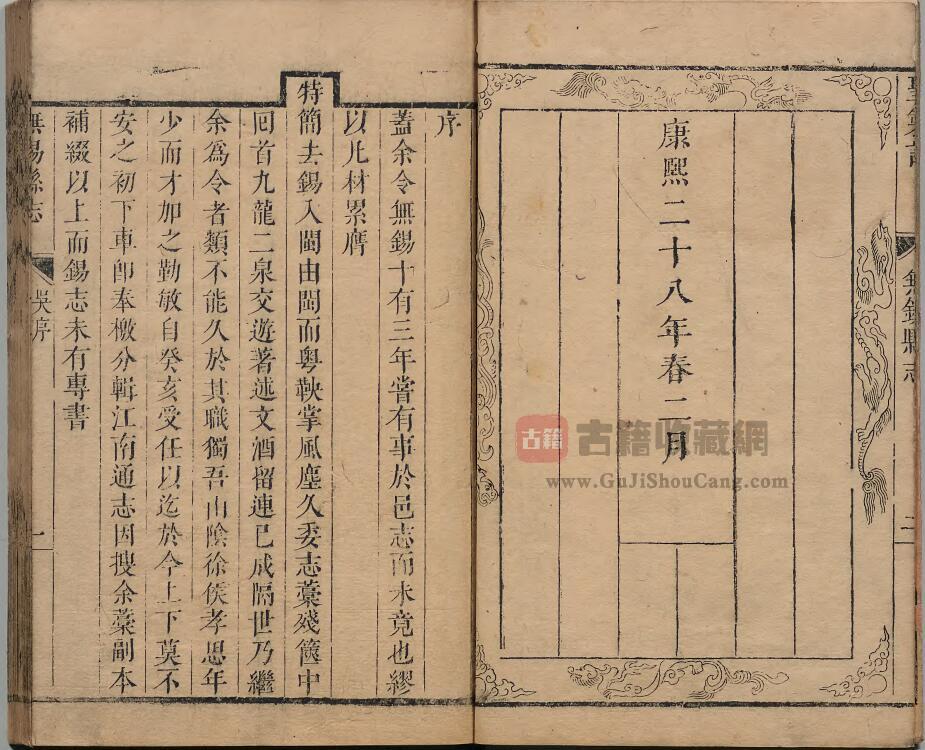 康熙二十八年春二月
序
蓋余令無錫十有三年嘗有事於邑志而未竟也繆
以凡材累膺
特
簡去錫入閩由閩而粵鞅掌風塵久委志藁殘篋中
回首九龍二泉交遊著述文酒留連已成隔世乃繼
余為令者類不能久於其職獨吾山陰徐侯孝思年
少而才加之勤敏自癸亥受任以迄於今上下莫不
安之初下車即奉檄分輯江南通志因搜余藁副本
補綴以上而錫志未有專書
無錫縣志
吳序
一
無錫縣志
二
古籍
古籍收藏網
www.GuJiShouCang.com